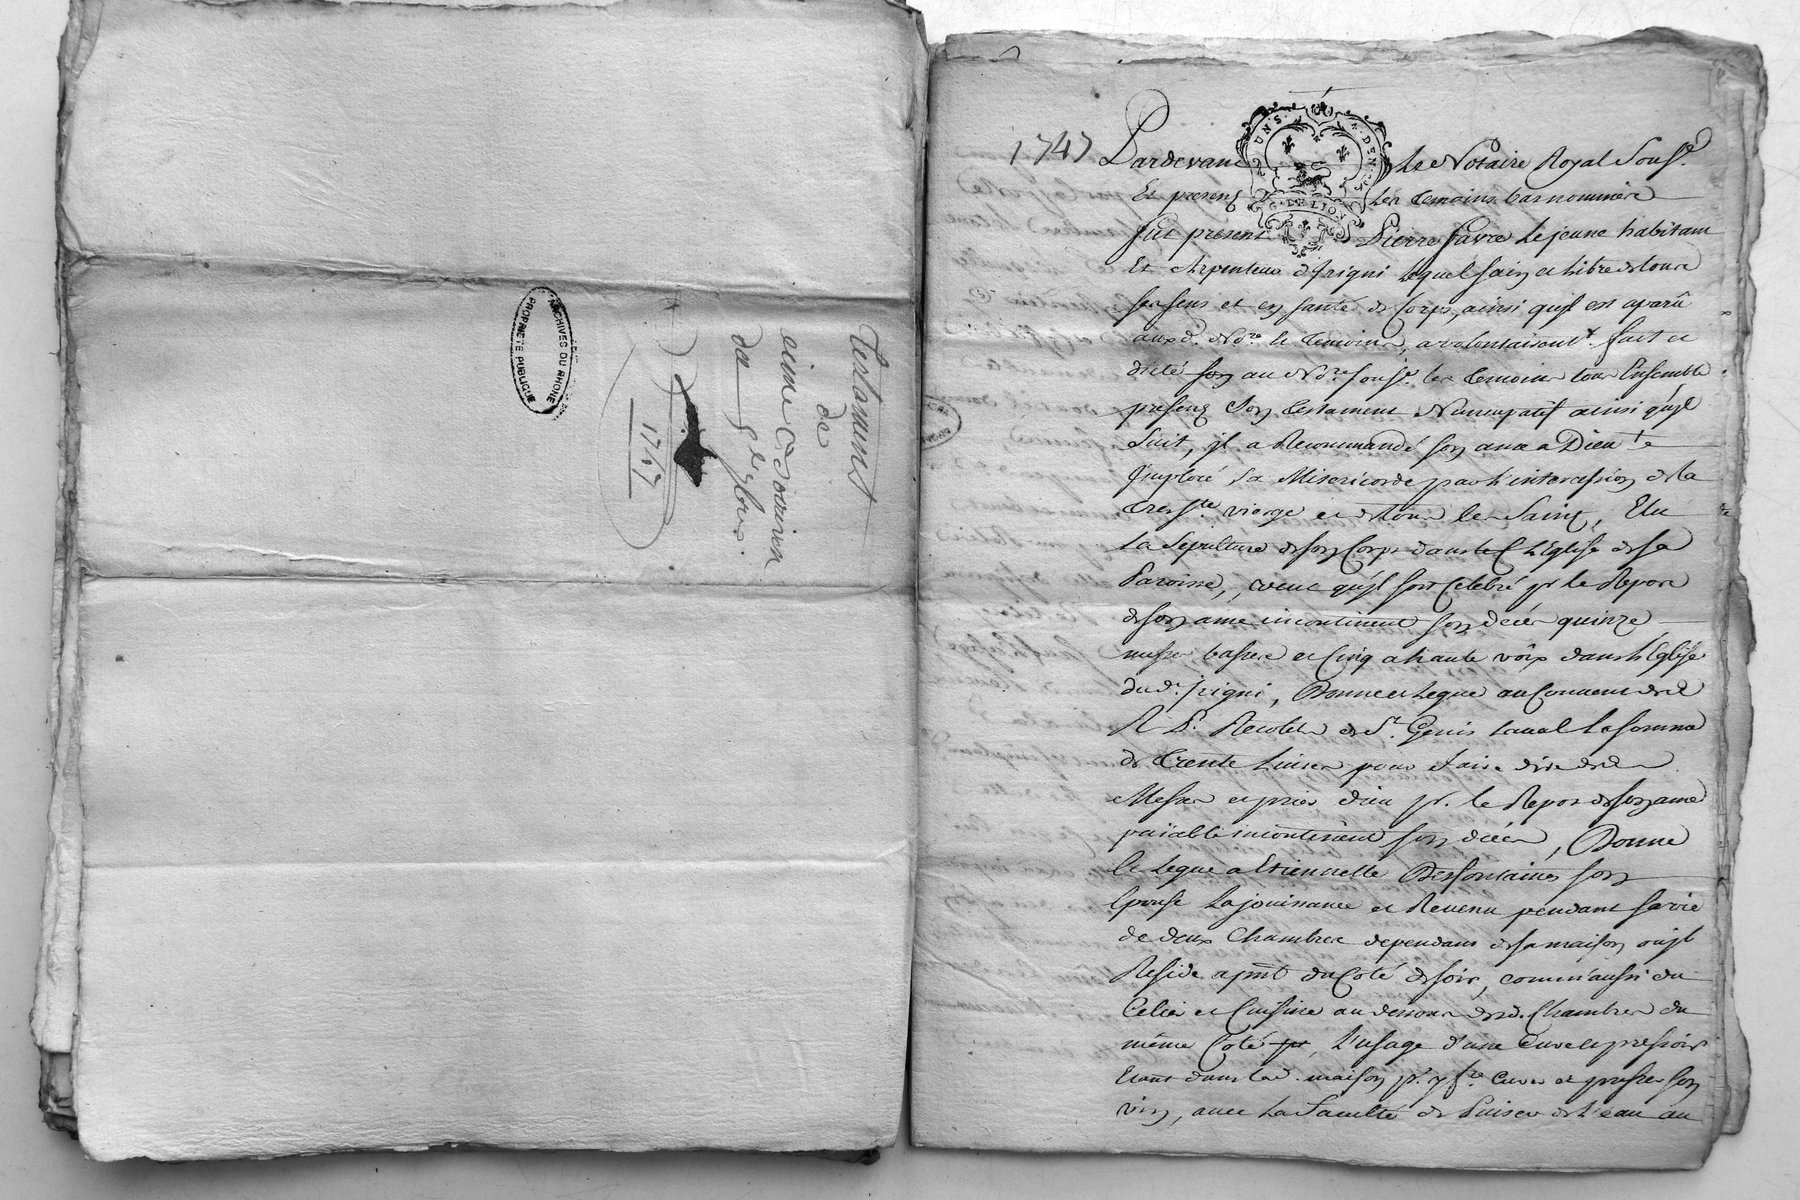 Testament
de
aine
de
1747
ARCHIVES DU RHONE
PROPRIETE PUBLIQUE
1747
Pardevant le Notaire Royal Souss.é
Et presens les temoins bas nommés
fut present Pierre favre le jeune habitant
Et Arpenteur d'Irigni lequel sain et libre de tous
ses sens et en santé de Corps, ainsi qu'jl est aparû
auxd. No.re & temoins, a volontairem.t fait et
dicté son au No.re souss.é les temoins tous Ensemble
presens Son testament Nuncupatif ainsi qu'jl
Suit, jl a Recommandé son ame a Dieu
Jmploré sa Misericorde par l'intercession de la
tres S.te vierge et de tous les Saints, Elu
La Sepulture de son Corps dans l'Eglise de sa
Paroisse, veut qu'jl soit Celebré p.r le Repos
de son ame incontinent son decés quinze
messes basses et Cinq a haute voix dans l'Eglise
dud. jrigni, Donne et Legue au Couvent des
R. P. Recolets de S.t Genis Laval la somme
de trente Livres pour faire dire des
Messes et prier dieu p.r le Repos de son ame
païable incontinent son decés, Donne
& Legue a Etiennette Desfontaines son
Epouse La jouissance et Revenu pendant sa vie
de deux Chambres dependans de sa maison ou jl
Reside a p.nt du Coté de soir, comm'aussi du
Celier et Cuisine au dessous desd. Chambres du
même Coté, L'usage d'une Cuve & pressoir
Etant dans lad. maison p.r y f.re Cuver et presser son
vin, avec La Faculté de Puiser de l'eau au